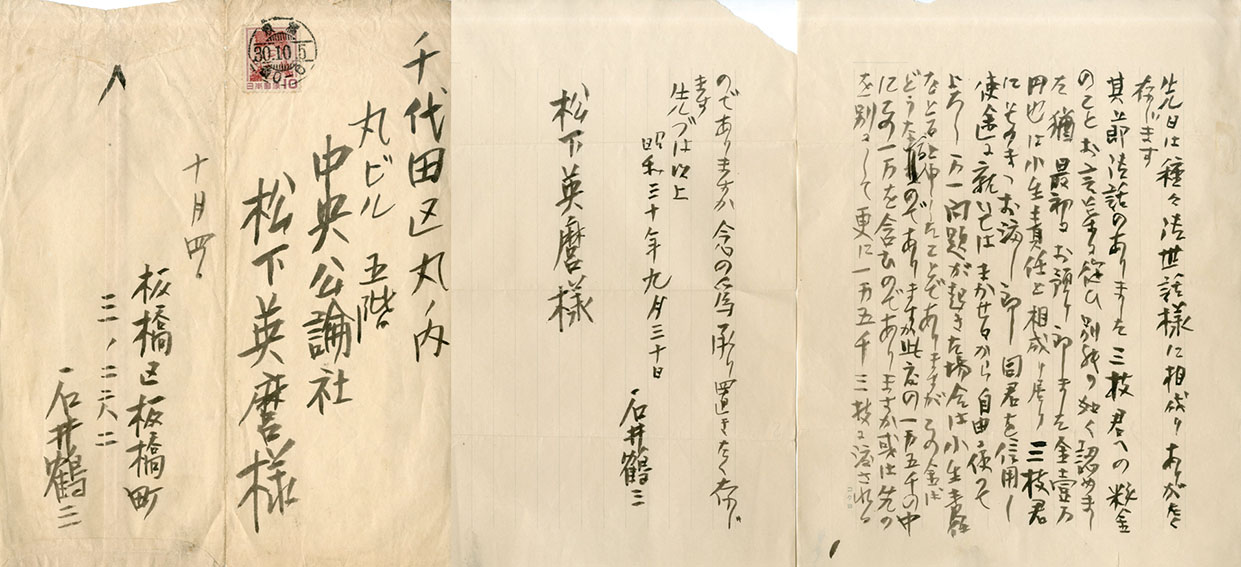 千代田区丸ノ内
丸ビル 五階
中央公論社
松下英麿様
30.10.5
日本郵便
10
十月四日
板橋区板橋町
三ノ二六二
石井鶴三
先日は種々御世話様に相成りありがたく
存じます
其節御話のありました三枝君への稼金
のこと お言葉に従ひ別紙の如く認めまし
た 猶 最初にお預り致しました金壹万
円也は小生責任と相成り居り 三枝君
にそのまゝお渡し致し 同君を信用し
使途に就いては まかせるから自由に使つて
よろし 万一問題が起きた場合は小生責任
などと申したことでありますが その金は
どうなるのでありますか 此度の一万五千の中
にこの一万を含むのでありますか 或は先の
を別にして更に一万五千 三枝に渡される
のでありますか 念の為承り置きたく存じ
ます
先づは以上
昭和三十年九月三十日
石井鶴三
松下英麿様